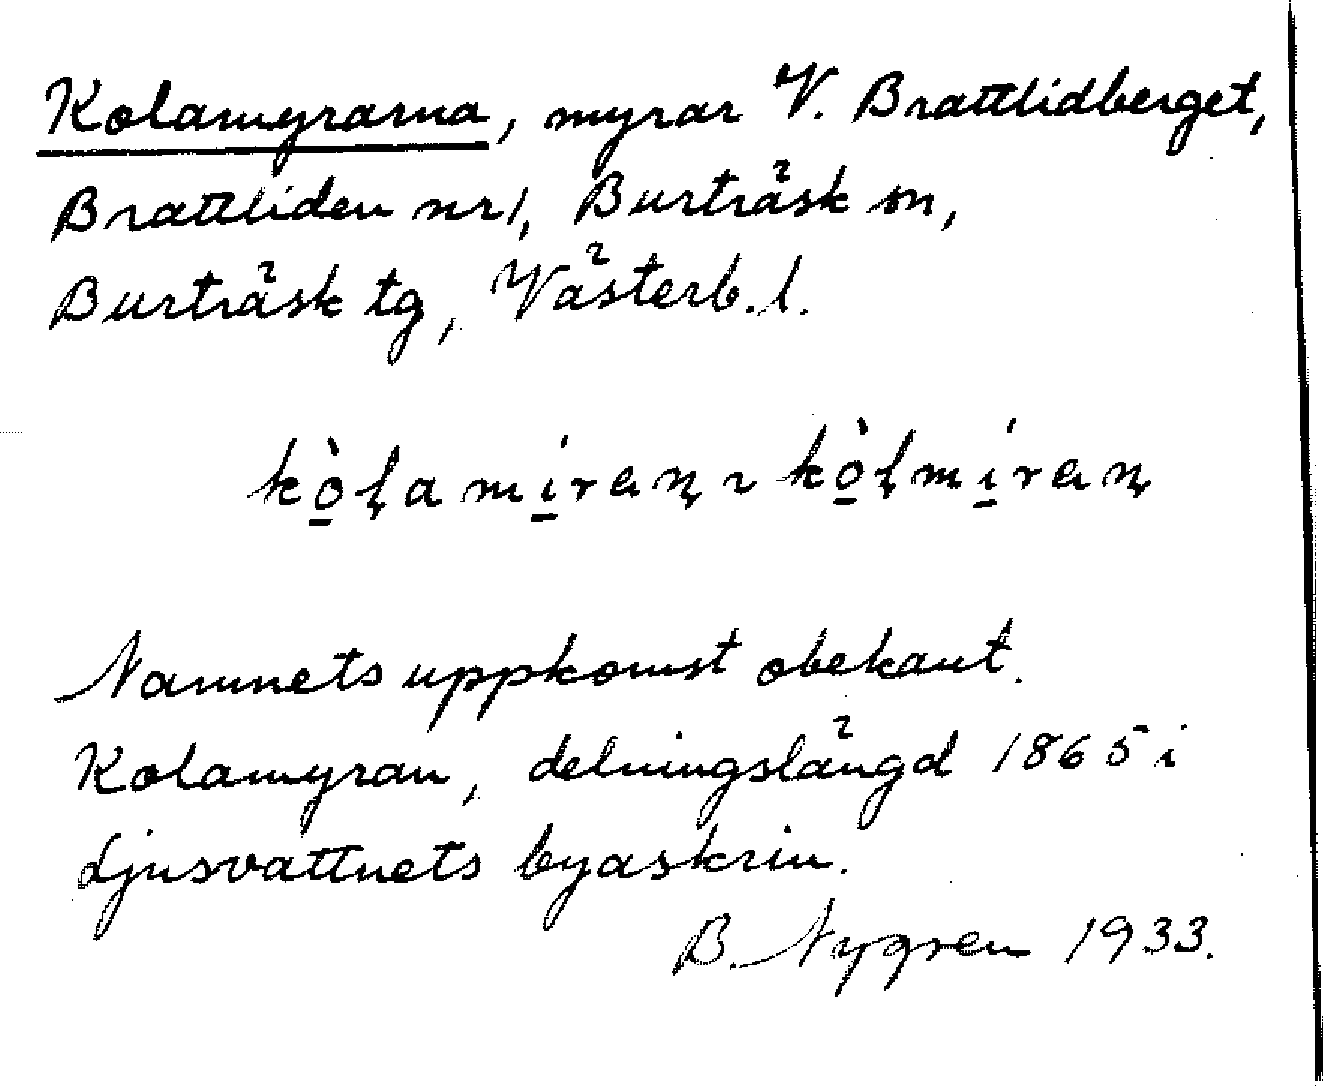 Kolamyrarna, myrar V. Brattlidberget,
Brattliden nr 1, Burträsk sn,
Burträsk tg, Västerb. l.
kò̱ḷamí̱raṇ ~ kò̱ḷmí̱raṇ
Namnets uppkomst obekant.
Kolamyran, delningslängd 1865 i
Ljusvattnets byaskrin.
B. Nygren 1933.